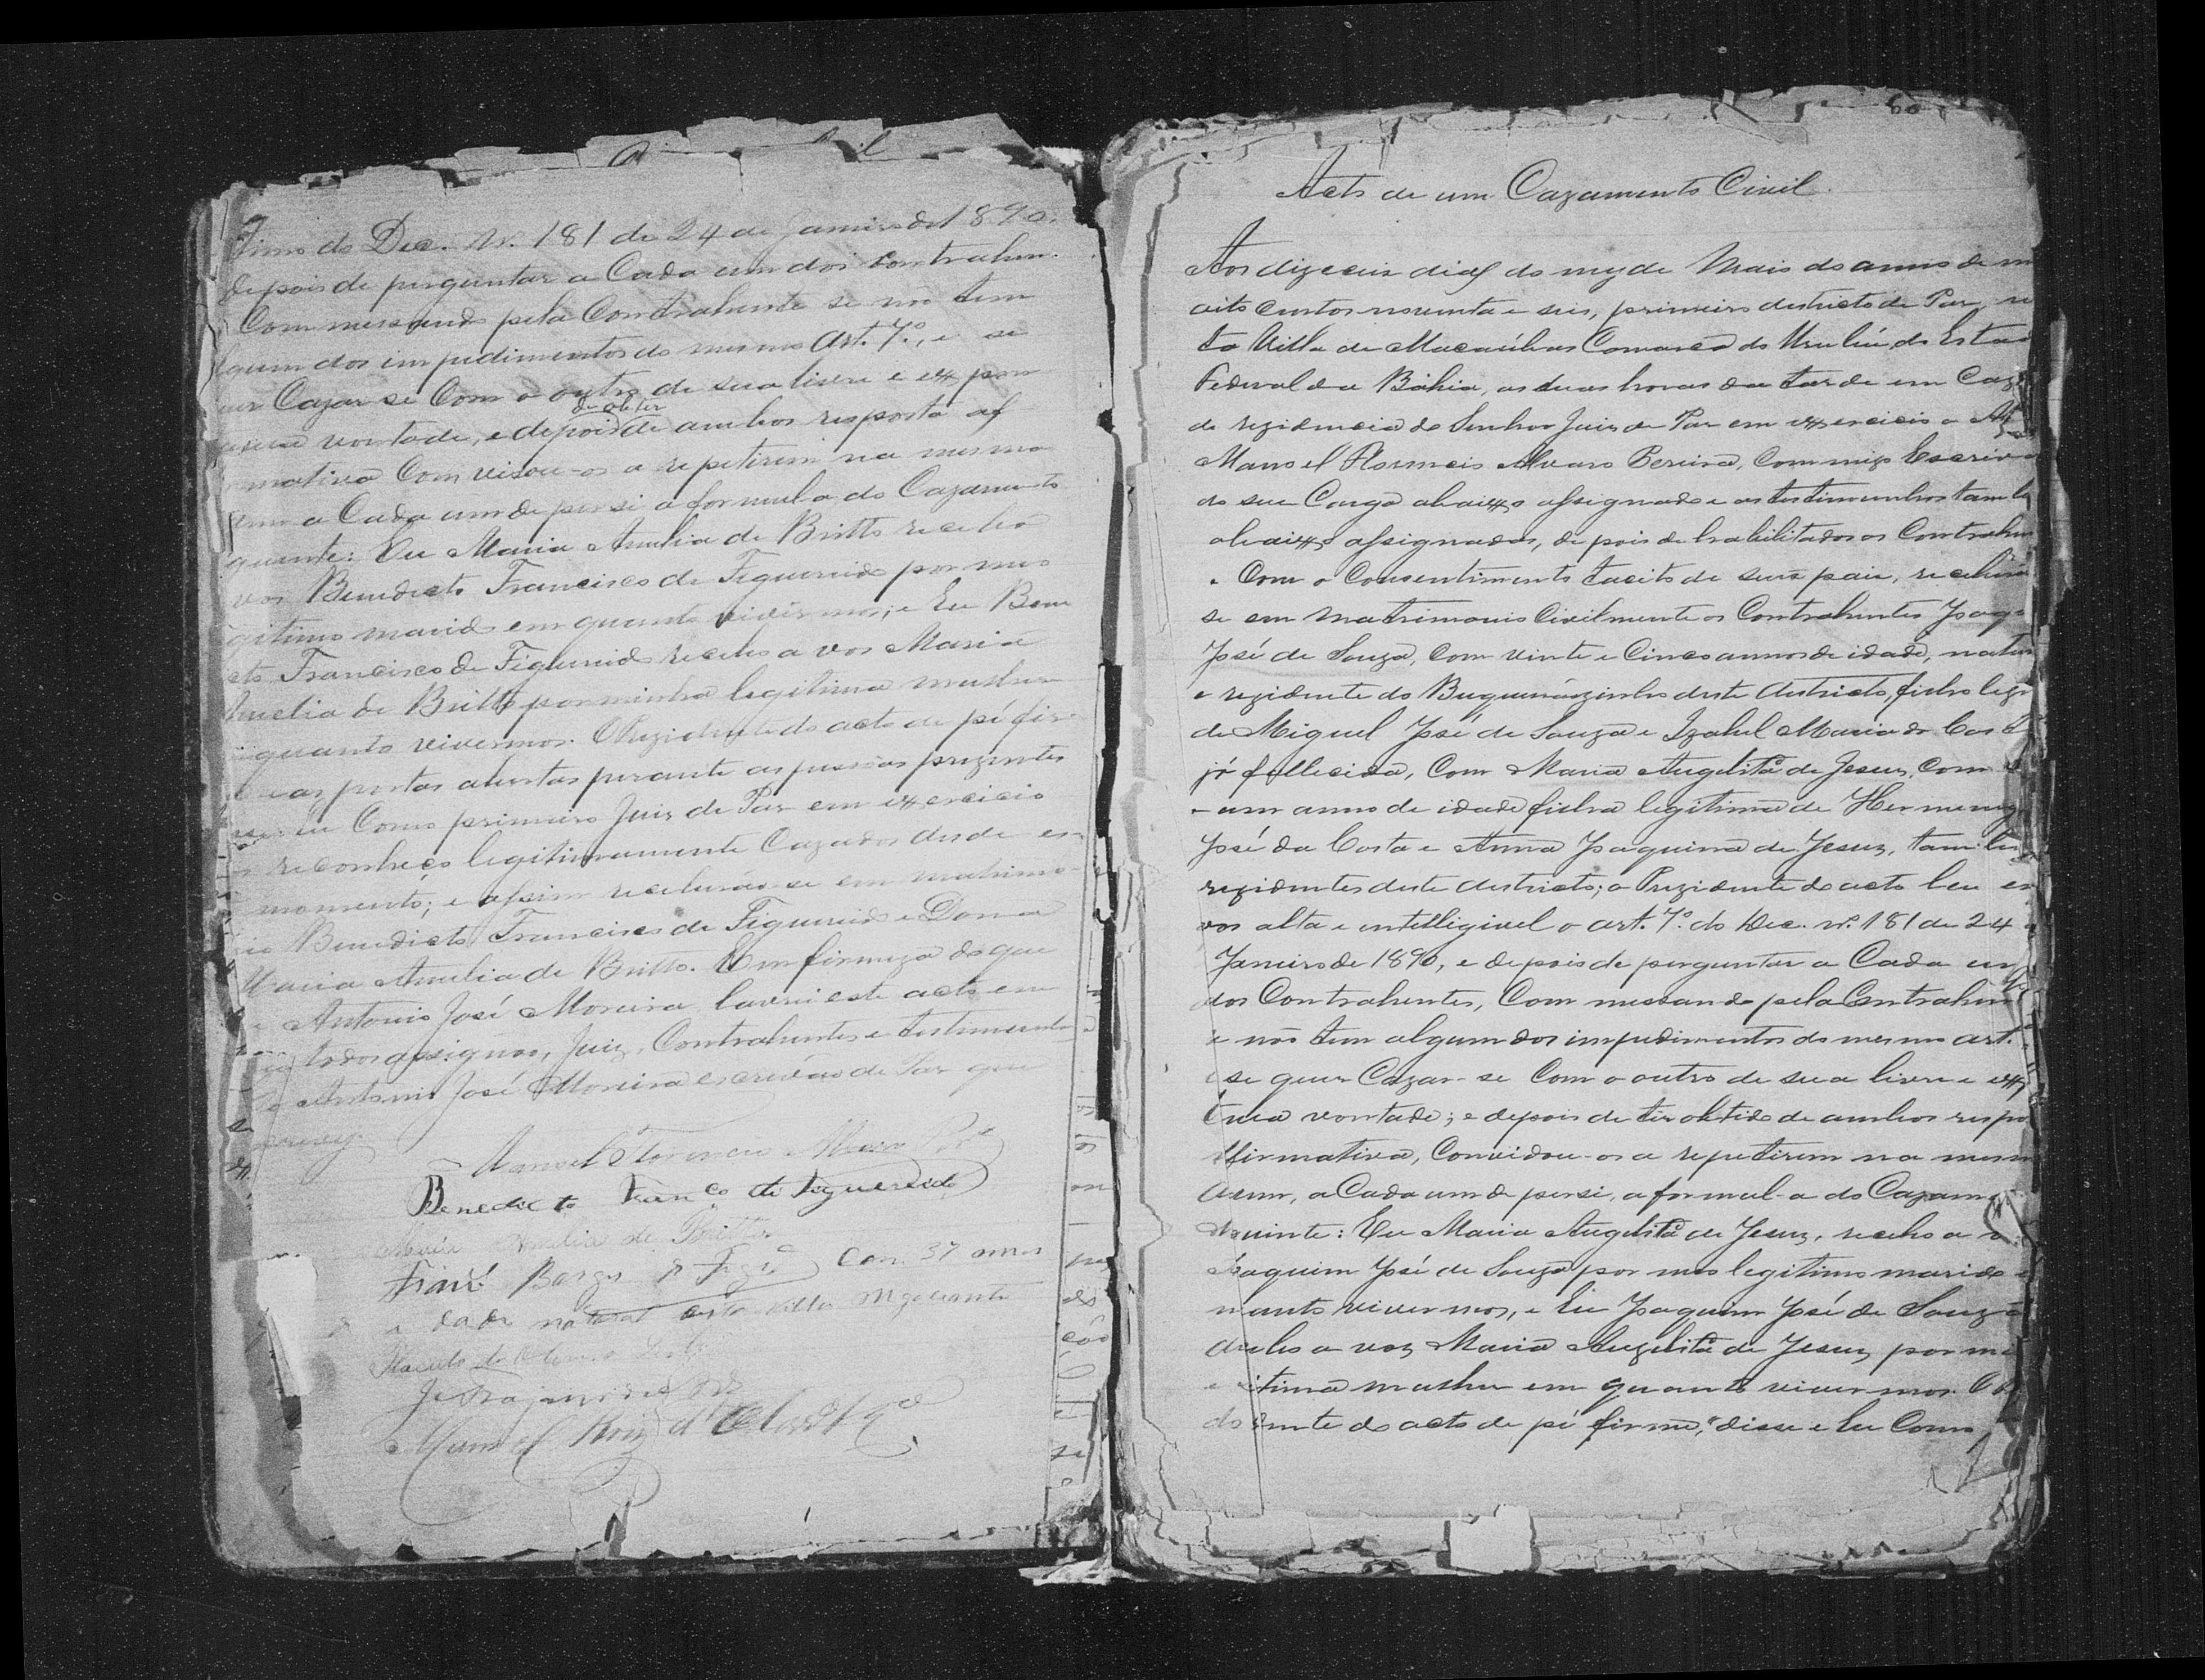 timo do Dec. N. 181 de 24 de Janeiro de 1890.
depois de perguntar a Cada um dos Contrahen-
Commessando pela Contrahente se não tem
lgum dos impedimentos do mesmo Art. 7º, e se
uer Cazar-se Com o outro de sua livre e expon
vontade, e depois de obter de ambos resposta af
mativa Comvidou-os a repetirem na mesma
a Cada um de per si a formula do Cazamento
guinte: Eu Maria Amelia de Britto recebo
vos Benedicto Francisco de Figueiredo por meo
gitimo marido em quanto vivermos; e Eu Bene
cto Francisco de Figueiredo recebo a vos Maria
Amelia de Britto por minha legitima mulher
quanto vivermos. O Prezidente do acto de pé fir
as portas abertas perante as pessoas prezentes
Eu Como primeiro Juiz de Paz em exercicio
reconheço legitimamente Cazados desde es-
momento; e assim receberão-se em matrimo-
nio Benedicto Francisco de Figueiredo e Dona
Maria Amelia de Britto. Em firmeza do que
Antonio José Moreira lavrei este acto em
todos assignão, Juiz, Contrahentes e testimunhas
Antonio José Moreira escrivão de Paz que
escrevy.
Manoel Florencio Alvaro Pra
Benedicto Franco de Figuereido
Maria Amelia de Britto
Borges de Figdo Com 37 annos
dade natural desta villa
Manoel
Acto de um Cazamento Civil.
Aos dizeceis dias do mez de Maio do anno de m
oito centos noventa e seis, primeiro districto de Paz
da Villa de Macaúbas Comarca do Urubú, do Estad
Federal da Bahia, as duas horas da tarde em Caza
de rezidencia do Senhor Juiz de Paz em exercicio o
Manoel Florencio Alvaro Pereira, Commigo Escrivã
do seu Cargo abaixo assignado e as testimunhas tamb
abaixo assignadas, depois de habilitados os Contrahen
e Com o Consentimento tacito de seus pais, receberã
se em matrimonio Civilmente os Contrahentes Joaq
José de Souza, Com vinte e Cinco annos de idade, natur
e rezidente do Buqueirãozinho deste districto, filho legi
de Miguel José de Souza e Izabel Maria da Cost
já fallecida, Com Maria Angelita de Jesus, Com
um anno de idade filha legitima de Hermeneg
José da Costa e Anna Joaquina de Jesus, tambem
rezidentes deste districto; o Prezidente do acto leu em
vos alta e intelligivel o art. 7º do Dec. nº 181 de 24
Janeiro de 1890, e depois de perguntar a Cada um
dos Contrahentes, Commessando pela Contrahen
e não tem algum dos impedimentos do mesmo art.
se quer Cazar-se Com o outro de sua livre e exp
tnea vontade; e depois de ter obtido de ambos respo
ffirmativa, Convidou-os a repetirem na mesm
a Cada um de per si, a formula do Cazam
guinte: Eu Maria Angelita de Jesus, recebo a v
Joaquim José de Souza por meo legitimo marido
nanto vivermos, e Eu Joaquim José de Souza
recebo a voz Maria Angelita de Jesus por mi
itima mulher em quanto vivermos. O
dente do acto de pé firme, disse e Eu Como